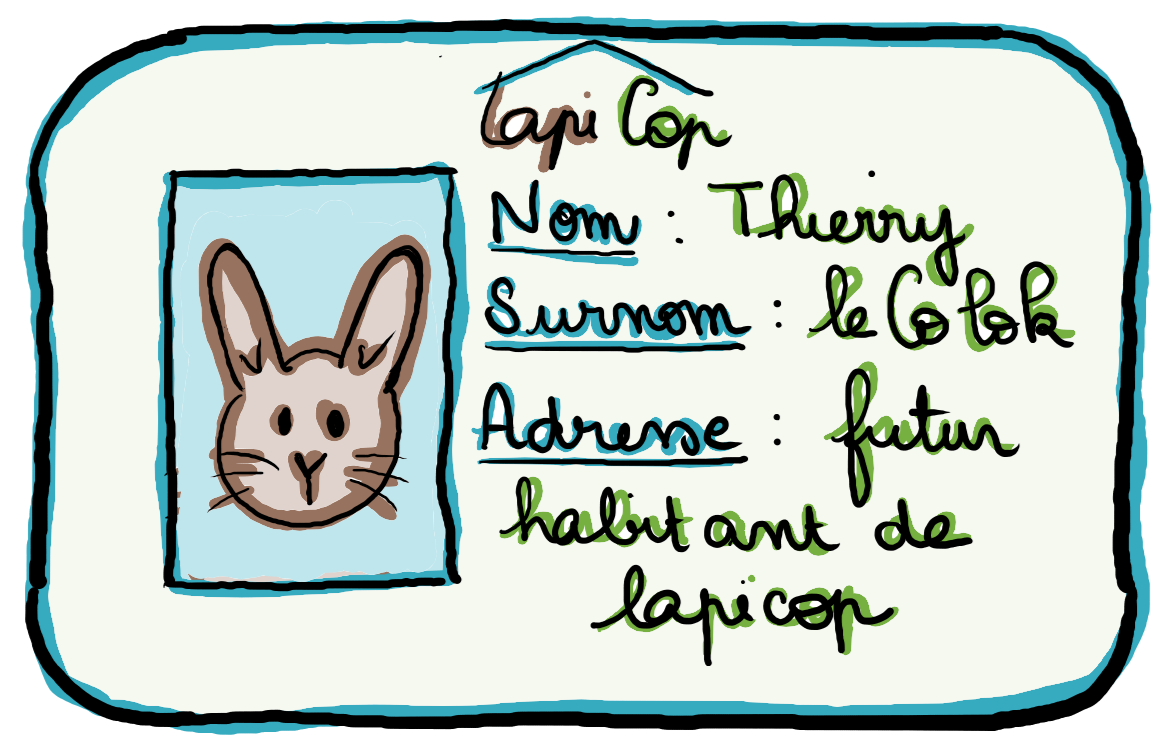 lapiCop
Nom : Thierry
Surnom : le Colok
Adresse : futur
habitant de
lapicop